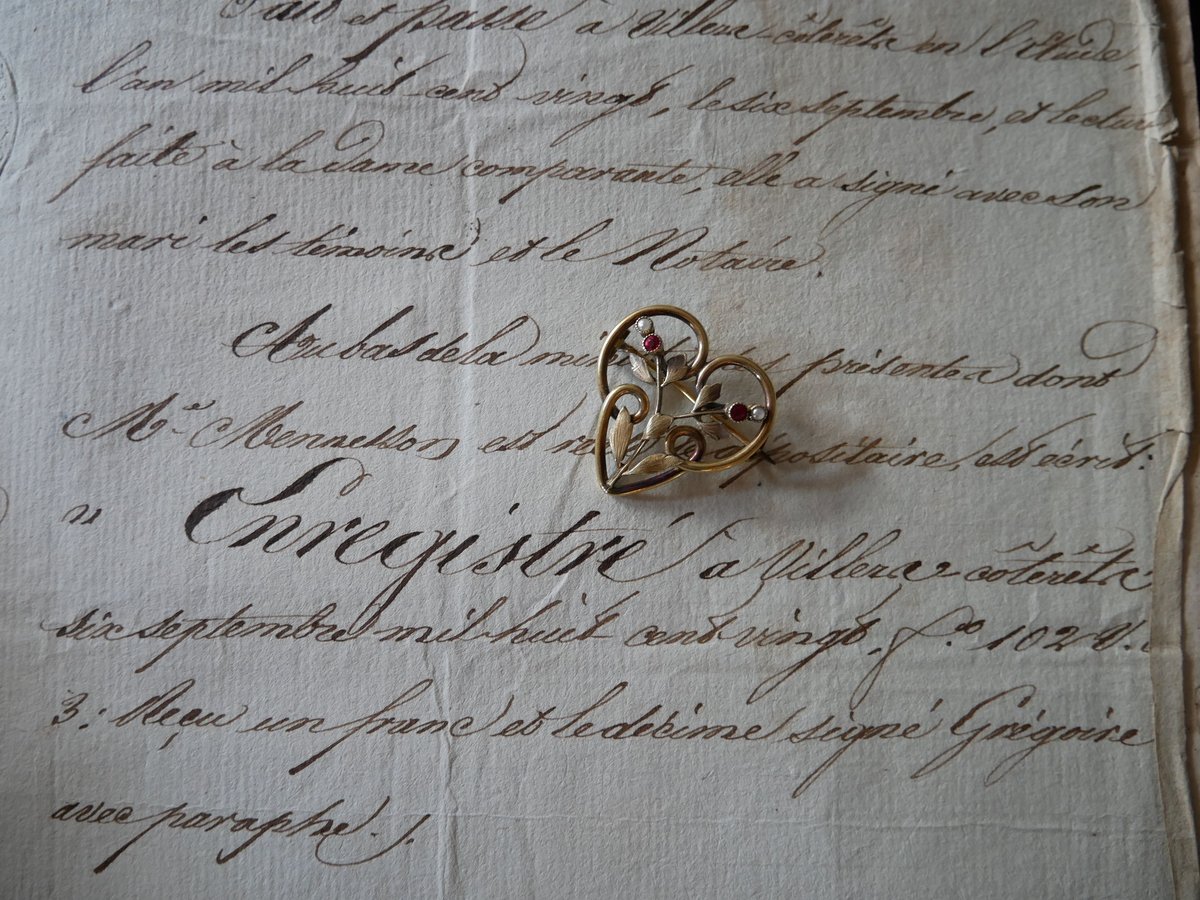 Fait et passé à Villers-côterêts en l'étude,
l'an mil huit cent vingt, le six septembre, et lecture
faite à la dame comparante, elle a signé avec son
mari les témoins et le Notaire.
Au bas de la présentes dont
Me. Mennesson est dépositaire, est écrit:
" Enregistré à Villers-côterêts
six septembre mil huit cent vingt, fo. 102 V.
3: Reçu un franc et le décime signé Grégoire
avec paraphe.